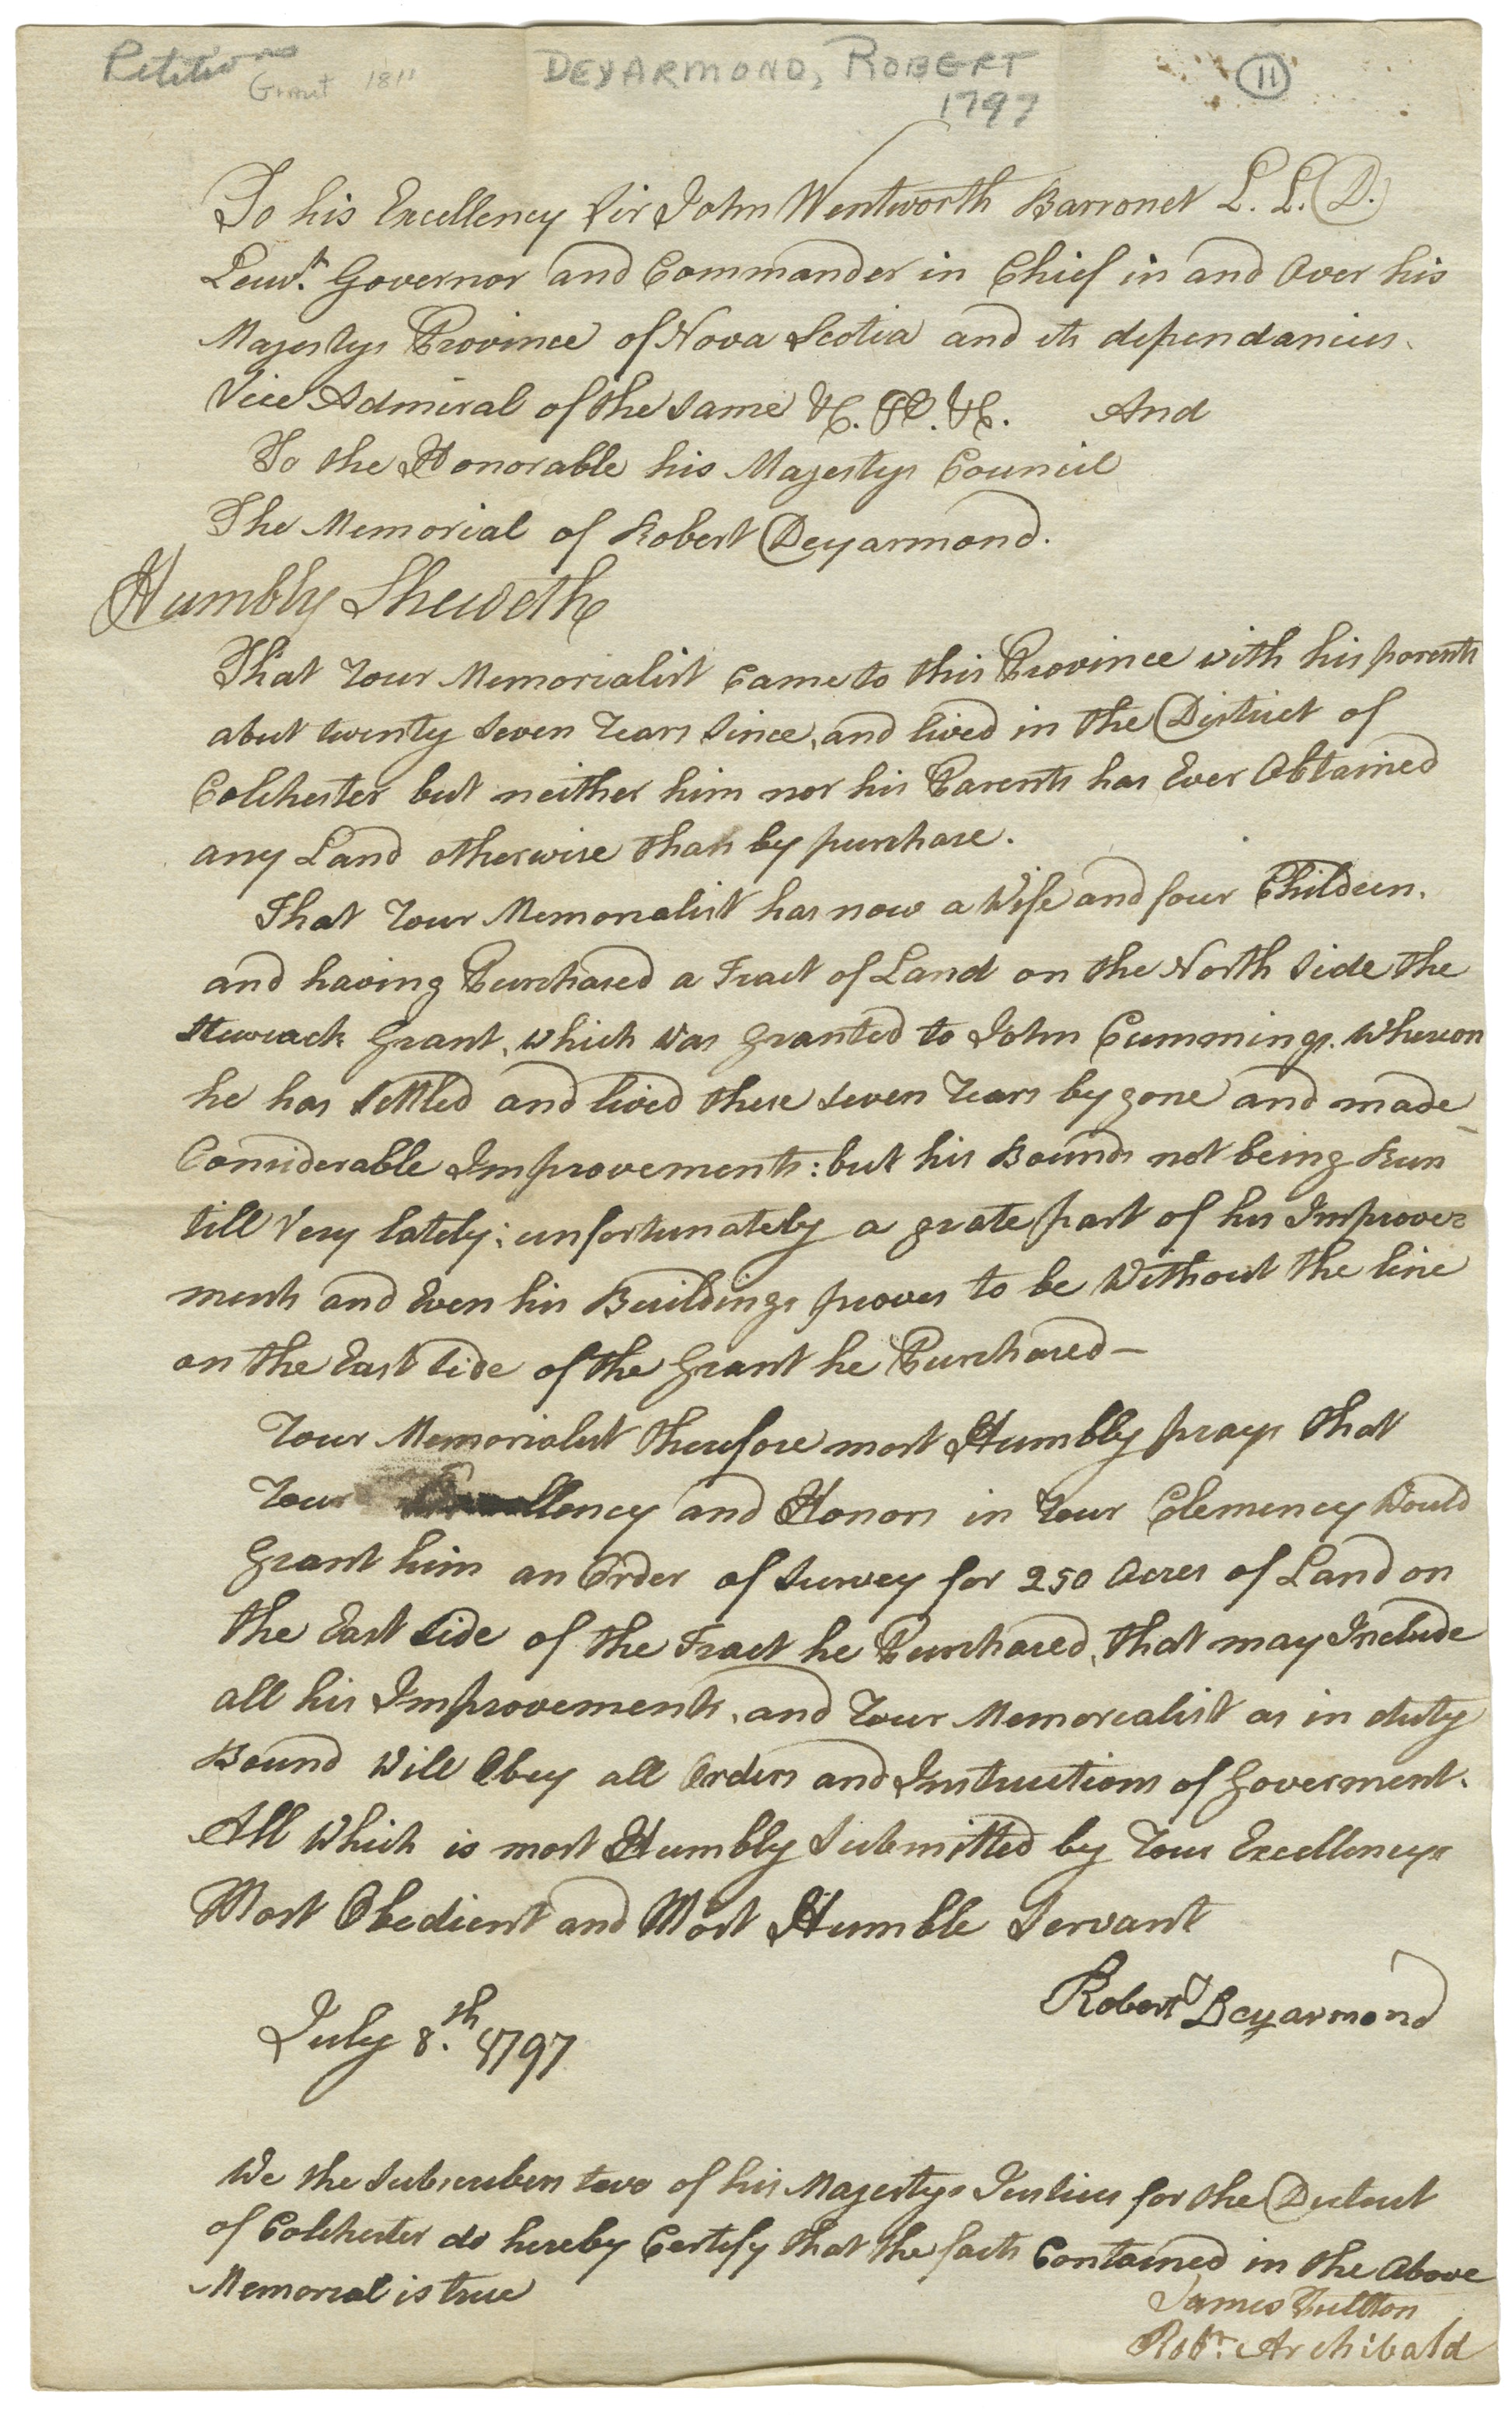 Petitions
Grant 1811
DEYARMOND, ROBERT
1797
11
To his Excellency Sir John Wentworth Barronet L. L. D.
Leiut. Governor and Commander in Chief in and Over his
Majestys Province of Nova Scotia and its dependancies.
Vice Admiral of the same &C. &C. &C. And
To the Honorable his Majestys Council
The Memorial of Robert Deyarmond.
Humbly Sheweth
That Your Memorialist Came to this Province with his parents
abut twenty seven Years since, and lived in the District of
Colchester but neither him nor his Parents has Ever Obtained
any Land otherwise than by purchase.
That Your Memorialist has now a Wife and four Children.
and having Purchased a Tract of Land on the North side the
Grant, which was Granted to John Cummings. Whereon
he has settled and lived these seven Years by gone and made
Considerable Improvements: but his Bounds not being Run
till Very lately; unfortunately a grate part of his Improve=
ments and Even his Buildings proves to be Without the line
on the East side of the Grant he Purchased—
Your Memorialist therefore most Humbly prays that
Your Excellency and Honors in Your Clemency Would
Grant him an Order of Survey for 250 Acres of Land on
the East side of the Tract he Purchased, that may Include
all his Improvements, and Your Memorialist as in duty
Bound Will Obey all Orders and Instructions of Goverment.
All Which is most Humbly Submitted by Your Excellencys
Most Obedient and Most Humble Servant
Robert Deyarmond
July 8.th 1797
We the Subscribers two of his Majestys Justices for the District
of Colchester do hereby Certify that the facts Contained in the Above
Memorial is true
James Fultton
Robt. Archibald